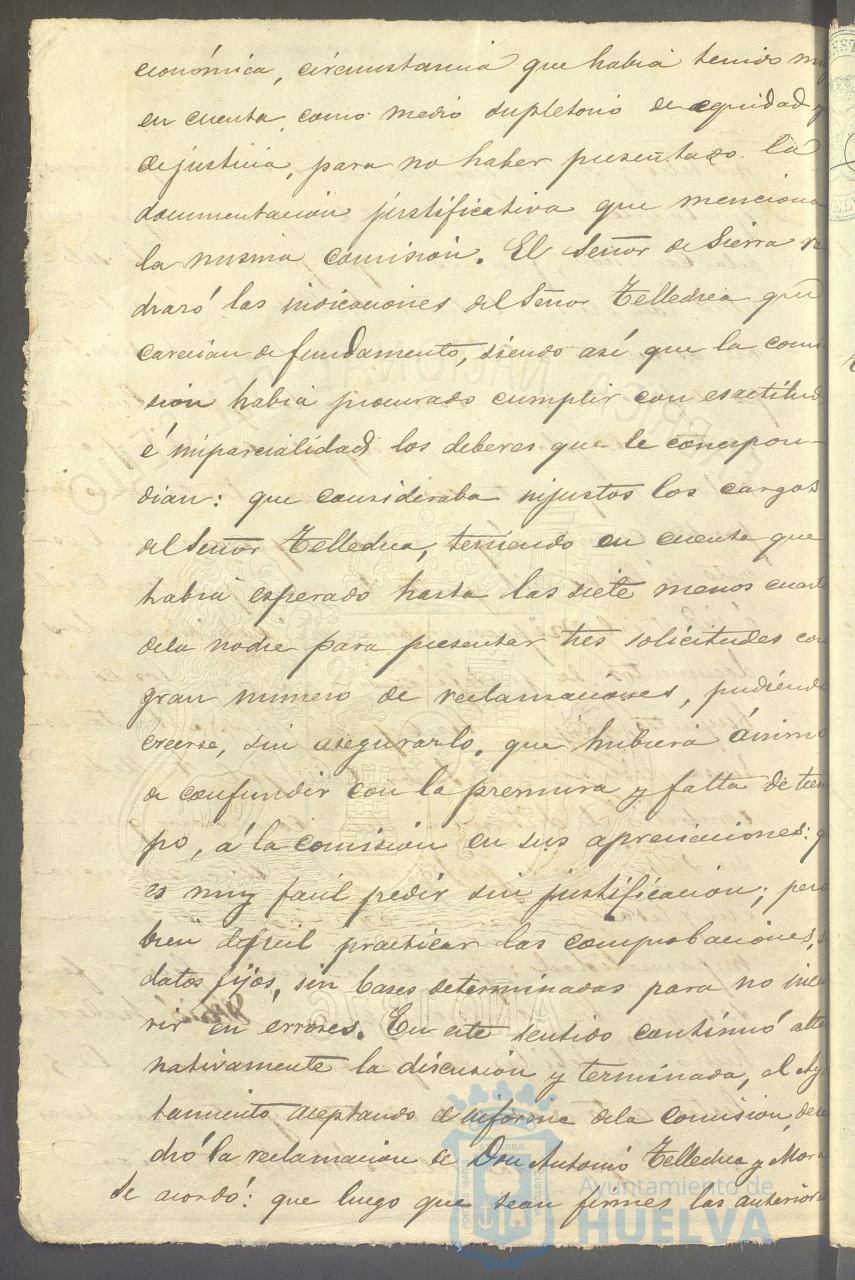 económica, circunstancia que habia tenido muy
en cuenta, como medio supletorio de equidad y
de justicia, para no haber presentado la
documentacion justificativa que menciona
la misma comision. El Señor de Sierra re
chazó las indicaciones del Señor Tellechea que
carecian de fundamento, siendo así que la comi-
sion habia procurado cumplir con esactitud
é imparcialidad los deberes que le correspon-
dian: que consideraba injustos los cargos
del Señor Tellechea, teniendo en cuenta que
habia esperado hasta las siete menos cuarto
dela noche para presentar tres solicitudes con
gran numero de reclamaciones, pudiendo
creerse, sin asegurarlo, que hubiera ánimo
de confundir con la premura y falta de tiem
po, á la comision en sus apreciaciones: q
es muy facil pedir sin justificacion; pero
bien dificil practicar las comprobaciones, s
datos fijos, sin bases determinadas para no incu
rir en errores. En este sentido continuó alter
nativamente la discusion y terminada, el Ayu
tamiento aceptando el informe dela comision, dese
chó la reclamacion de Don Antonio Tellechea y Mora
Se acordó: que luego que sean firmes las anteriore
Ayuntamiento de
HUELVA